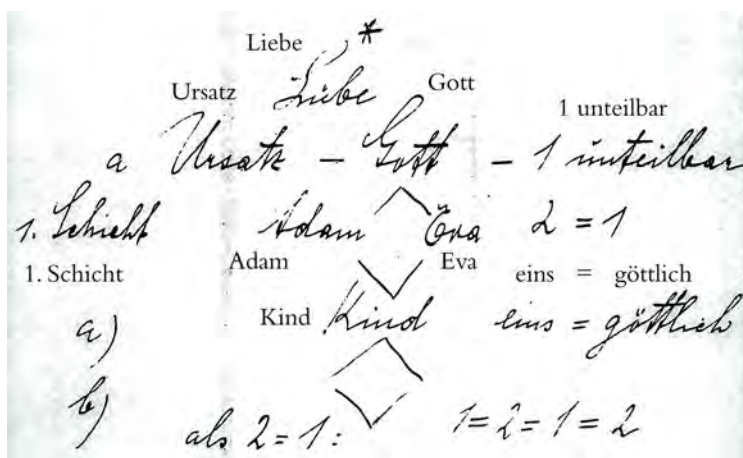 Liebe *
Liebe
Ursatz Gott 1 unteilbar
a Ursatz – Gott – 1 unteilbar
1. Schicht Adam Eva 2 = 1
1. Schicht Adam Eva eins = göttlich
a) Kind Kind eins = göttlich
b)
als 2 = 1: 1 = 2 = 1 = 2